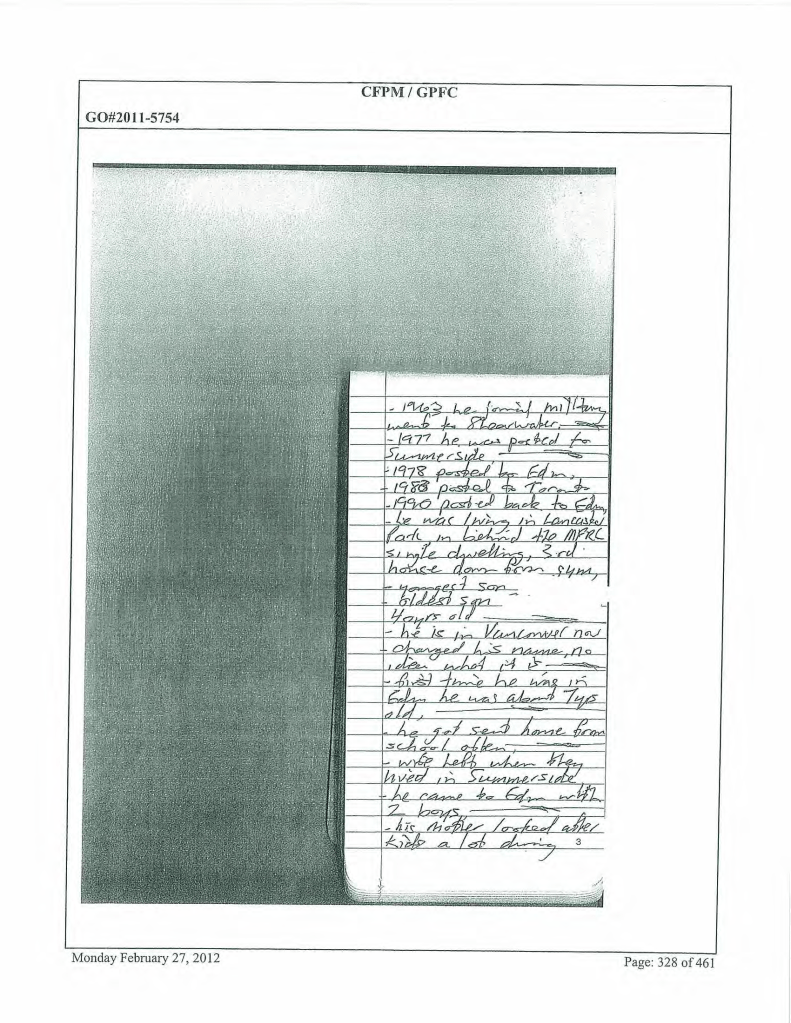 CFPM / GPFC
GO#2011-5754
- 1963 he joined military
went to Shearwater,
- 1977 he was posted to
Summerside
- 1978 posted to Edm,
- 1988 posted to Toronto
- 1990 posted back to Edm,
- he was living in Lancaster
Park in behind the MFRC
single dwelling, 3rd
house down from gym,
- youngest son
- oldest son
yrs old
- he is in Vancouver now
- changed his name, no
idea what it is
- first time he was in
Edm he was about 7yrs
old,
- he got sent home from
school often,
- wife left when they
lived in Summerside,
- he came to Edm with
2 boys,
- his mother looked after
kids a lot during
3
Monday February 27, 2012
Page: 328 of 461